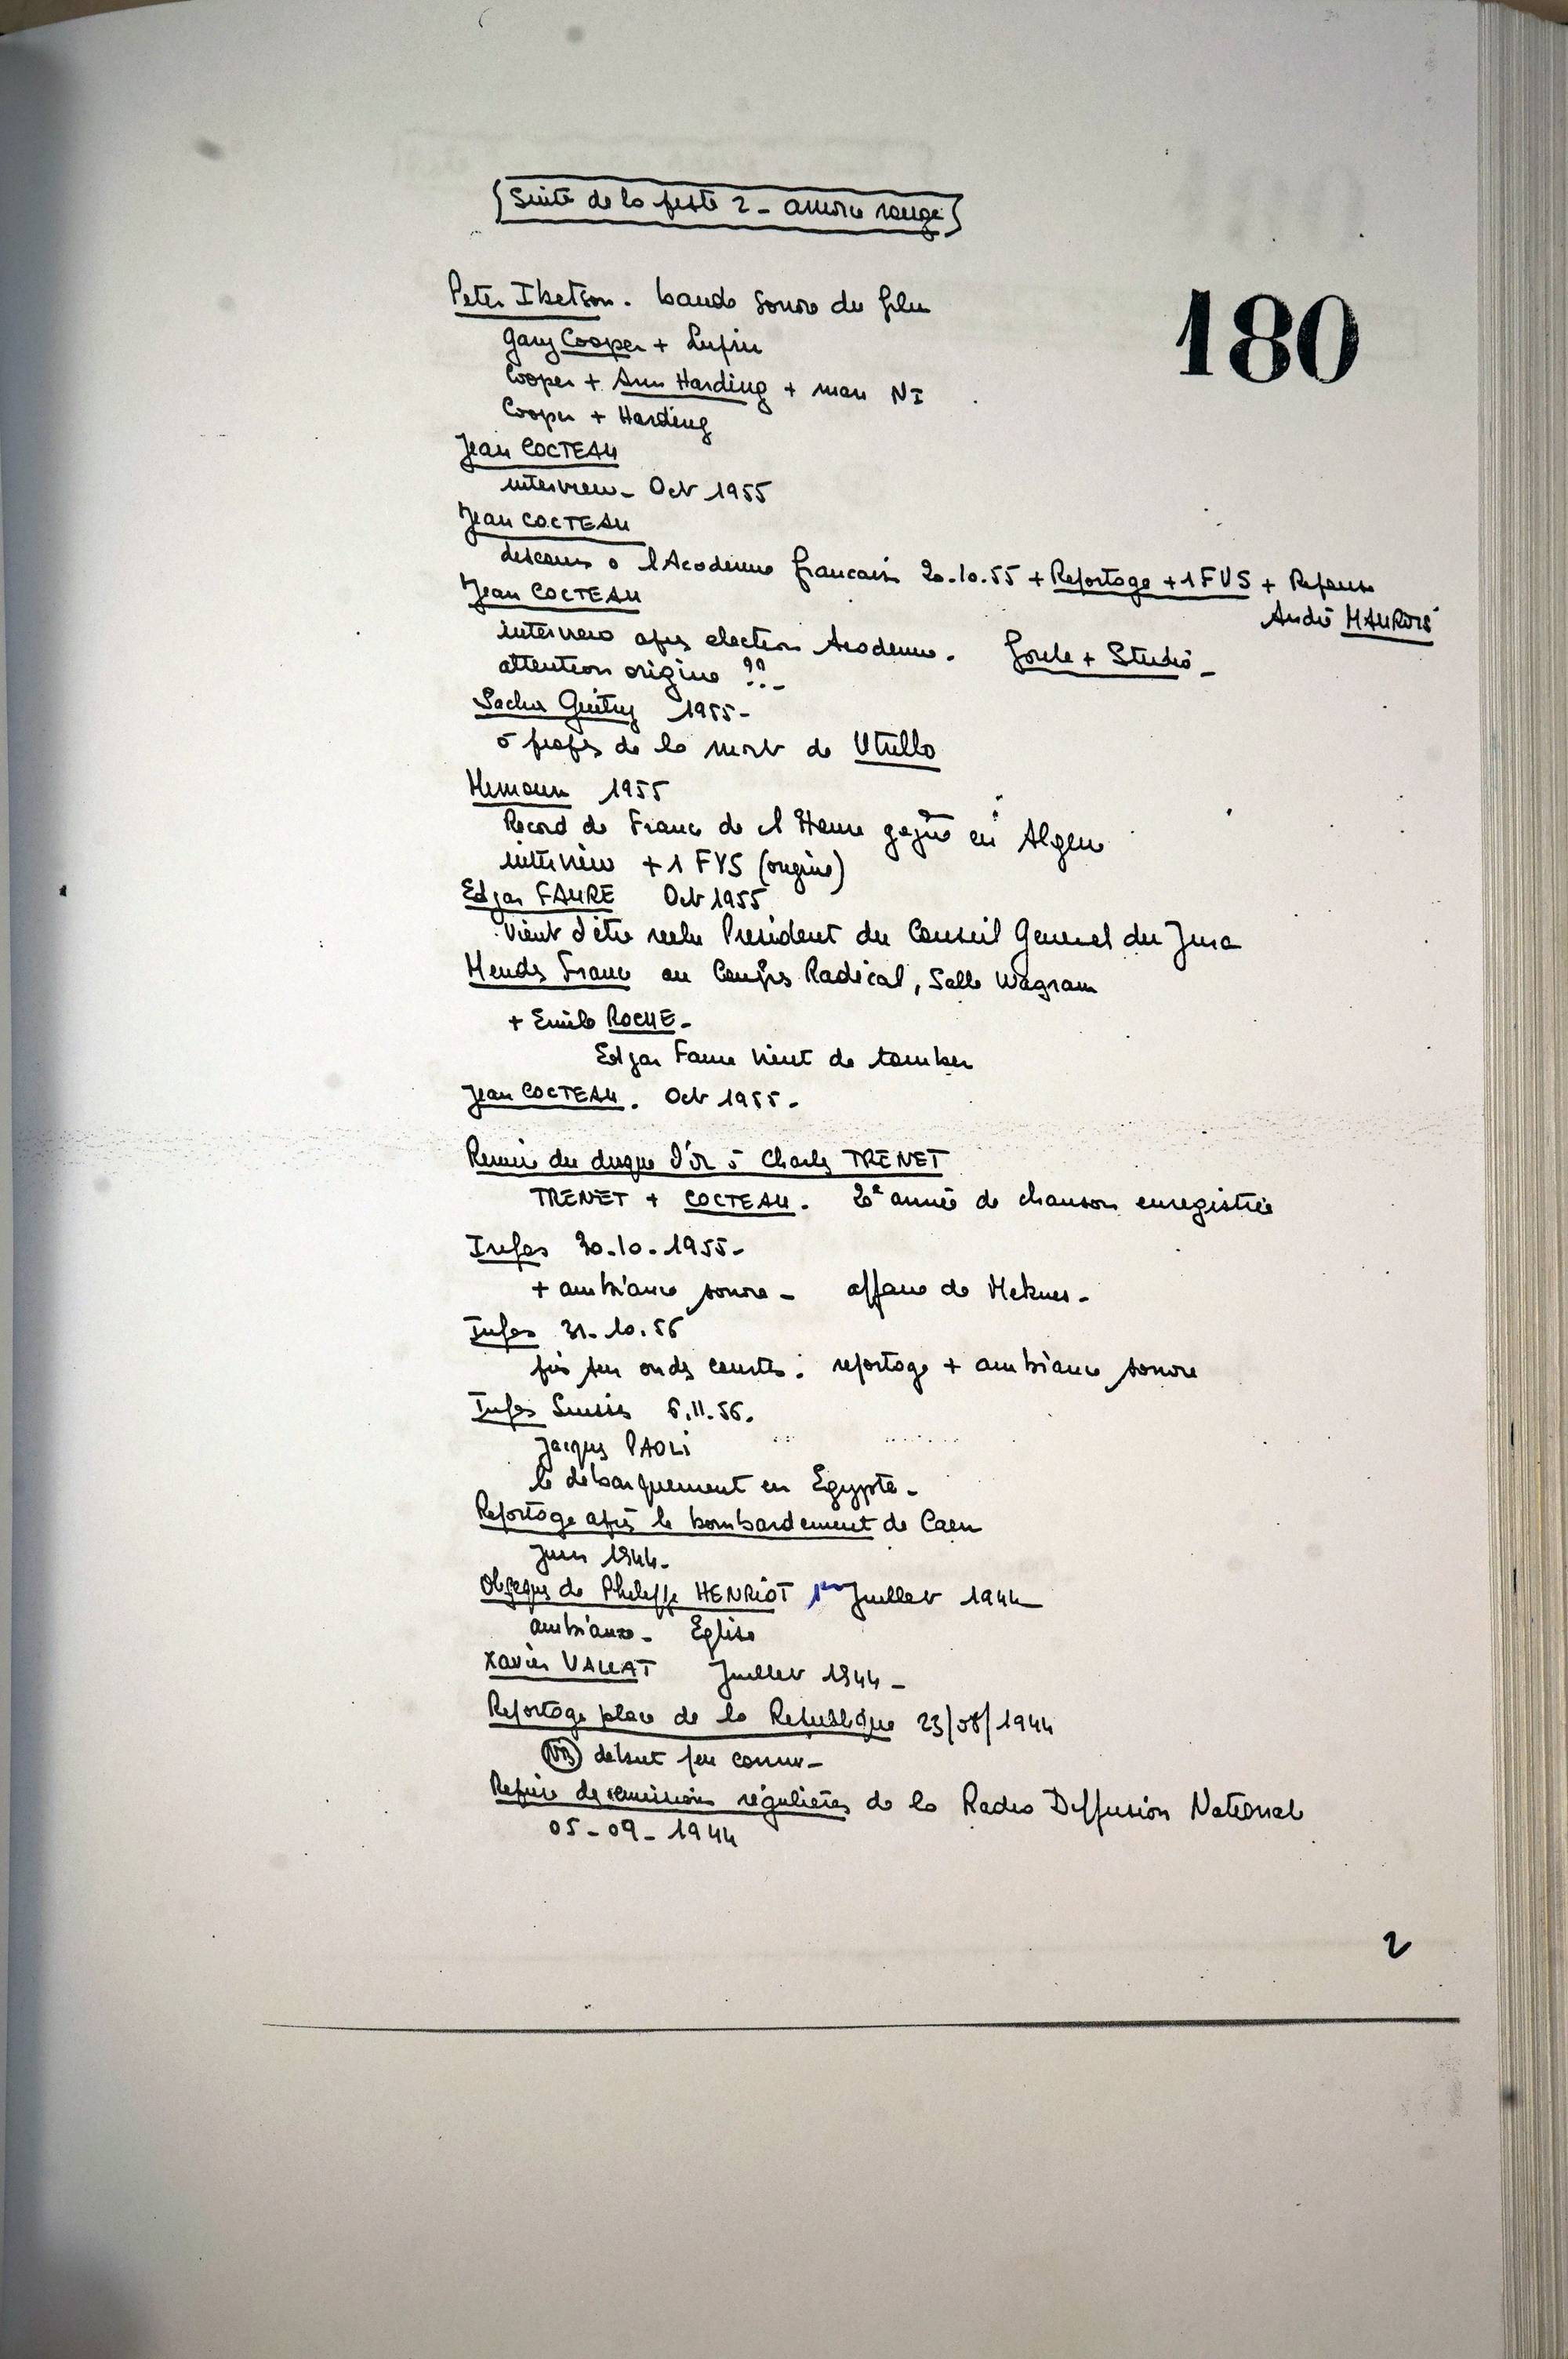 Suite de la piste 2 - amorce rouge
180
Peter Ibetson. bande sonore du film
Gary Cooper + Lupin
Cooper + Ann Harding + man NI
Cooper + Harding
Jean COCTEAU
interview - Oct 1955
Jean COCTEAU
discours à l'Académie française 20.10.55 + Reportage + 1 FVS + Reponse
André MAUROIS
Jean COCTEAU
interview apres election Academie. Foule + Studio -
attention origine ?? -
Sacha Guitry 1955 -
à propos de la mort de Utrillo
1955
Record de France de l'Heure gagné en Algerie
interview + 1 FVS (origine)
Edgar FAURE Oct 1955
vient d'être reelu President du Conseil General du Jura
Mendes France au Congrès Radical, Salle Wagram
+ Emile ROCHE -
Edgar Faure vient de tomber
Jean COCTEAU. Oct 1955 -
Remise du disque d'or à Charles TRENET
TRENET + COCTEAU. 20e année de chanson enregistrée
Infos 30.10.1955 -
+ ambiance sonore - affaire de Meknes -
Infos 31.10.56
pris sur ondes courtes : reportage + ambiance sonore
Infos Suisses 6.11.56.
Jacques PAOLI
le débarquement en Egypte -
Reportage après le bombardement de Caen
Juin 1944 -
Obseques de Philippe HENRIOT 1er Juillet 1944
ambiance - Eglise
Xavier VALLAT Juillet 1944 -
Reportage place de la Republique 23/08/1944
NB début peu connu -
Reprise des emissions régulières de la Radio Diffusion National
05-09-1944
2